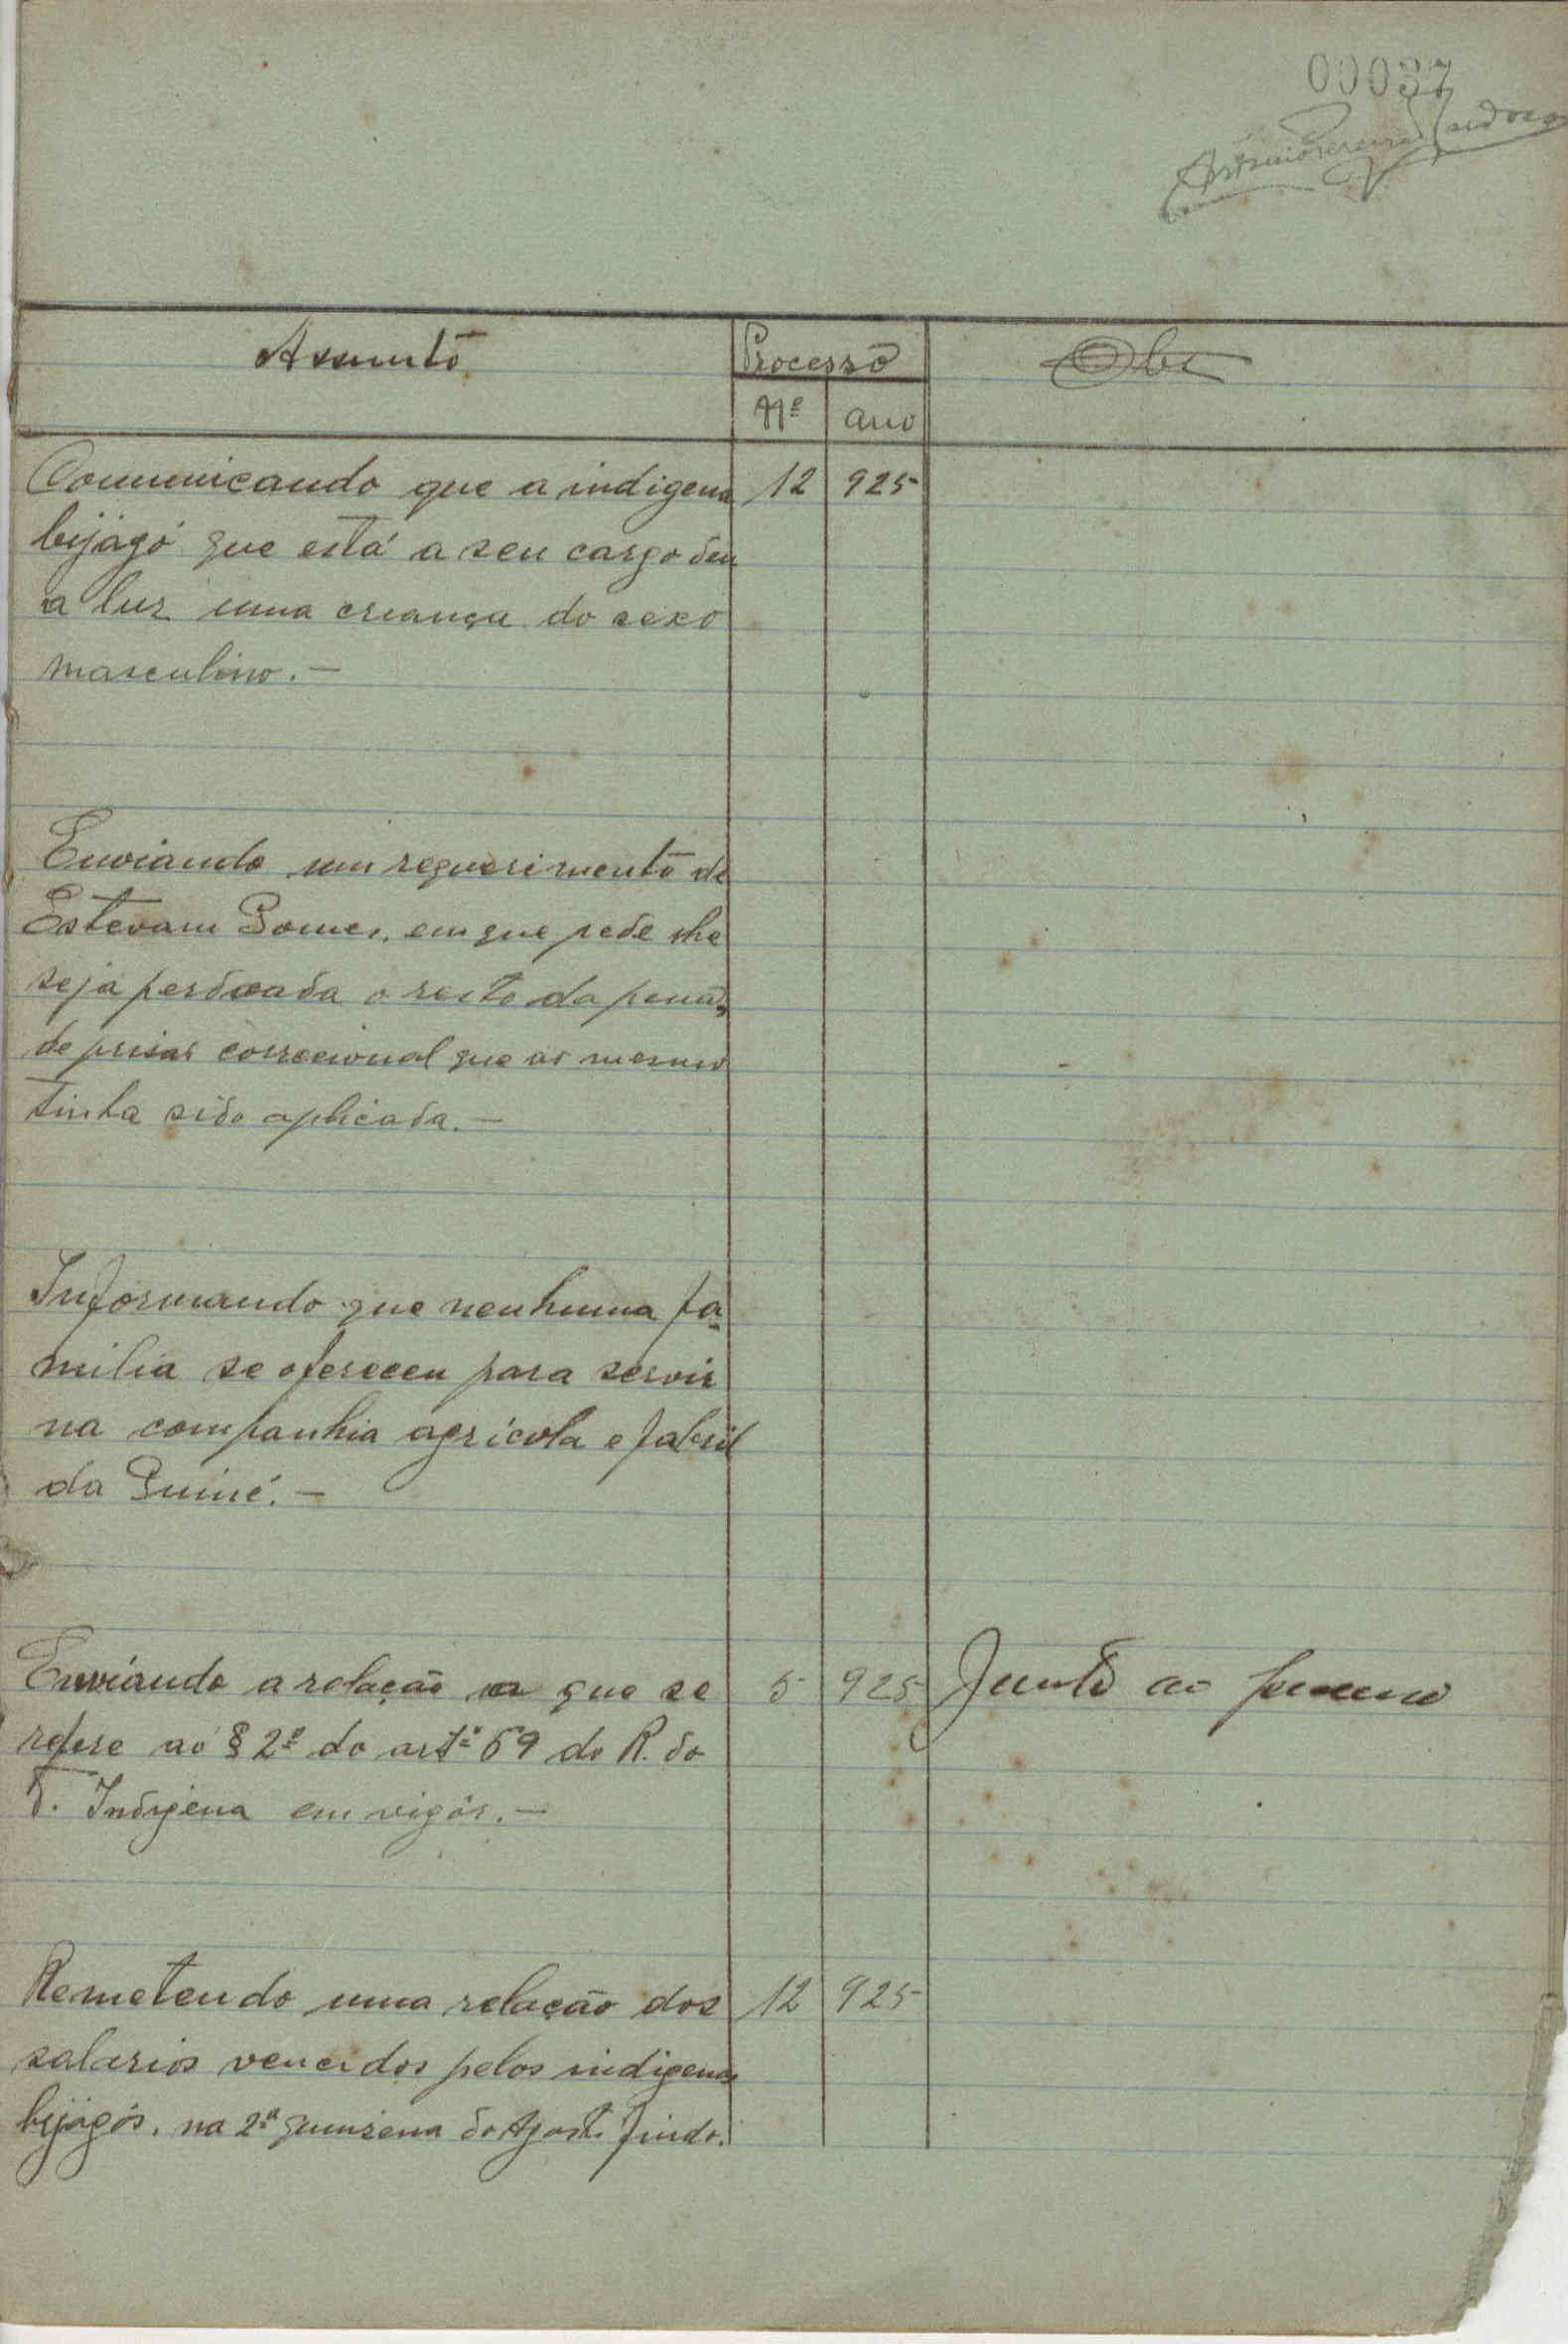 00037
Antonio Pereira Cardoso
Assunto Processo Obs
Nº ano
Comunicando que a indigena 12 925
bijagó que está a seu cargo deu
a luz uma criança do sexo
masculino. —
Enviando um requerimento de
Estevam Gomes, em que pede lhe
seja perdoada o resto da pena,
de prisão correcional que ao mesmo
tinha sido aplicada. —
Informando que nenhuma fa-
milia se ofereceu para servir
na companhia agricola e fabril
da Guiné. —
Enviando a relação a que se 5 925 Junto ao
refere ao § 2º do artº 69 do R. do
T. Indigena em vigôr. —
Remetendo uma relação dos 12 925
salarios vencidos pelos indigenas
bijagós, na 2ª quinzena do Agosto findo.